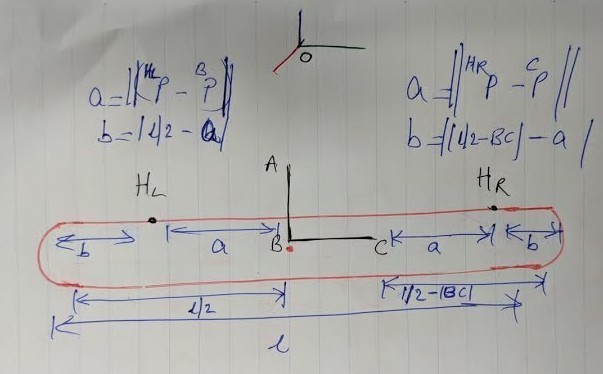 O
a = ||ᴴᴸP - ᴮP||
b = |L/2 - a|
a = ||ᴴᴿP - ᶜP||
b = |(L/2-BC) - a|
A
H_L
H_R
b
a
B
C
a
b
L/2
L/2-|BC|
l